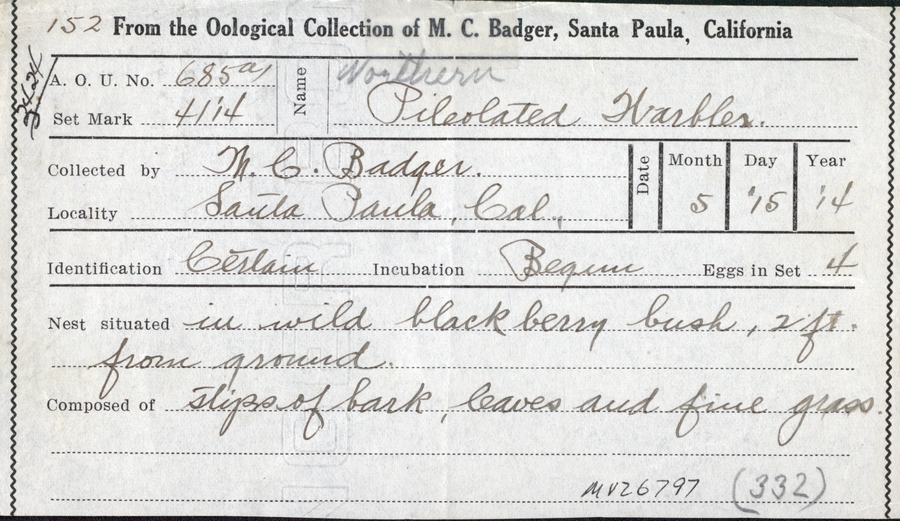 152 From the Oological Collection of M. C. Badger, Santa Paula, California
A. O. U. No. 685a Name Northern
Set Mark 4/14 Pileolated Warbler.
Collected by M. C. Badger. Date Month Day Year
Locality Santa Paula, Cal., 5 '15 '14
Identification Certain Incubation Begun Eggs in Set 4
Nest situated in wild blackberry bush, 2 ft.
from ground.
Composed of stips of bark, leaves and fine grass.
MV26797 (332)